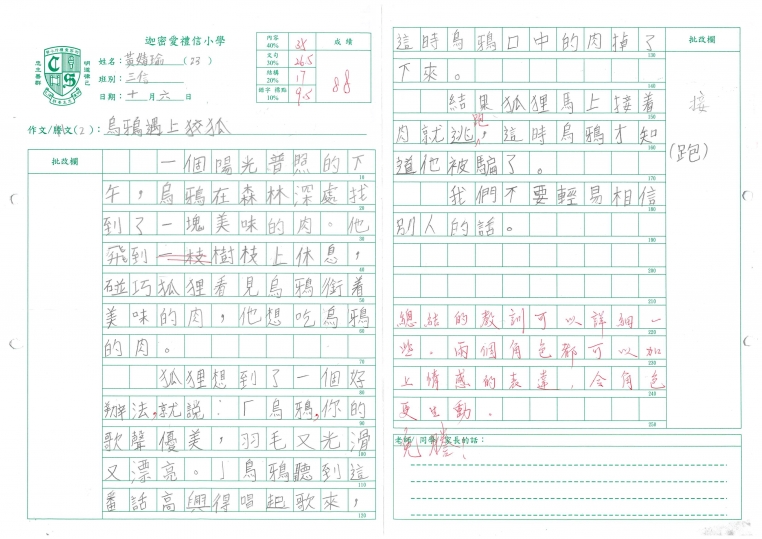 迦密愛禮信小學
姓名：黃
（23）
班別：三信
日期：十月六日
作文/謄文(2)：烏鴉遇上狡狐
內容 40% 35
文句 30% 26.5
結構 20% 17
錯字 標點 10% 9.5
成績
88
批改欄
一個陽光普照的下
午，烏鴉在森林深處找
到了一塊美味的肉。他
飛到一枝樹枝上休息，
碰巧狐狸看見烏鴉銜着
美味的肉，他想吃烏鴉
的肉。
狐狸想到了一個好
辦法，就說：「烏鴉，你的
歌聲優美，羽毛又光滑
又漂亮。」烏鴉聽到這
番話高興得唱起歌來，
這時烏鴉口中的肉掉了
下來。
結果狐狸馬上接着
跑
肉就逃，這時烏鴉才知
道他被騙了。
我們不要輕易相信
別人的話。
總結的教訓可以詳細一
些。兩個角色都可以加
上情感的表達，令角色
更生動。
批改欄
接
(跑)
老師/同學/家長的話：